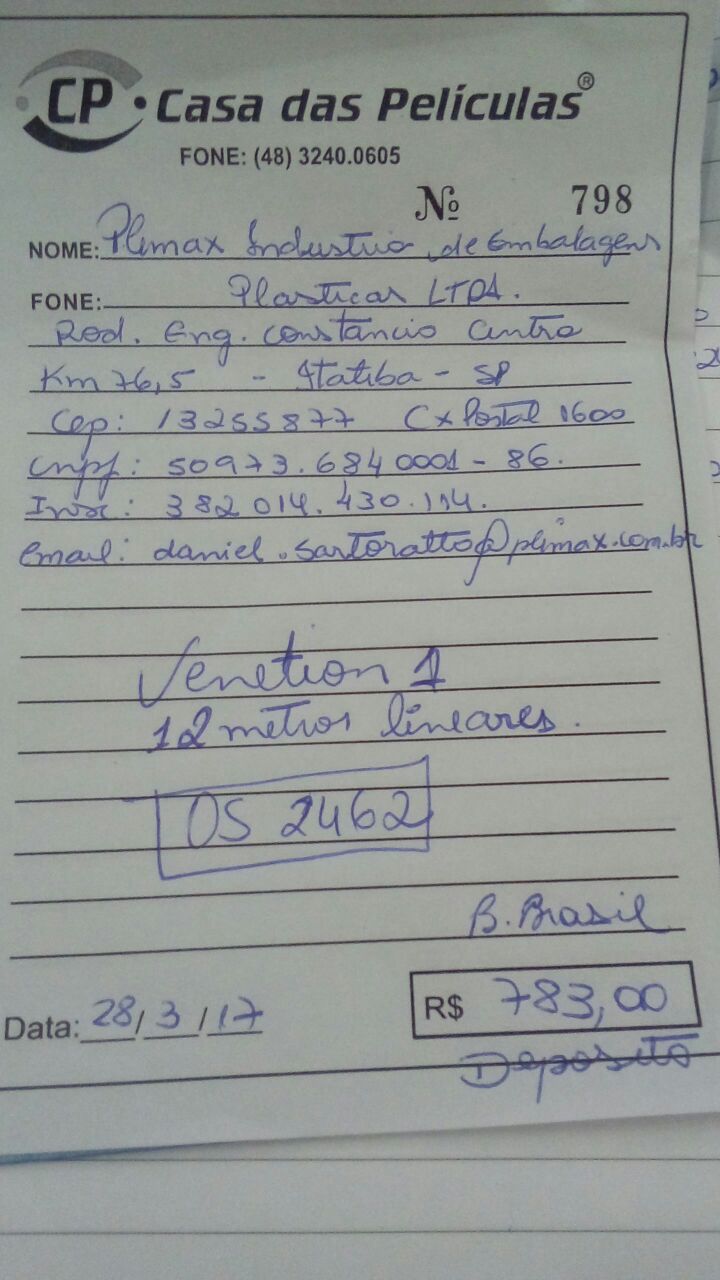 CP • Casa das Películas®
FONE: (48) 3240.0605
Nº 798
NOME: Plimax Industria de Embalagens
FONE: Plasticas LTDA.
Rod. Eng. Constancio Cintra
Km 76,5 - Itatiba - SP
Cep: 13255877 Cx Postal 1600
Cnpj: 50973.684 0001 - 86.
Insc: 382 014.430.114.
email: daniel.sartoratto@plimax.com.br
Venetion 1
12 metros lineares.
OS 2462
B. Brasil
Data: 28/3/17
R$ 783,00
Deposito